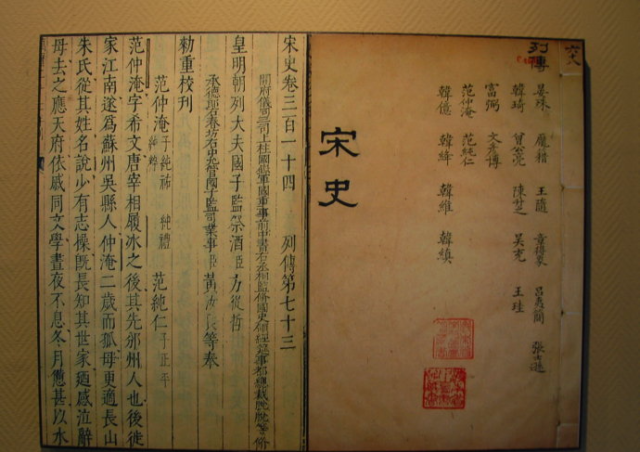 列傳
晏殊 龐籍 王隨 章得象 呂夷簡 張士遜
韓琦 曾公亮 陳升之 吳充 王珪
富弼 文彥博
范仲淹 范純仁
韓億 韓絳 韓維 韓縝
宋史
宋史卷三百一十四 列傳第七十三
開府儀同三司上柱國錄軍國重事前中書右丞相監修國史領經筵事都總裁脫脫等修
皇明朝列大夫國子監祭酒臣方從哲
承德郎右春坊右中允管國子監司業事臣黃汝良等奉
勑重校刊
范仲淹 子純祐 純禮 純粹 范純仁 子正平
范仲淹字希文唐宰相履冰之後其先邠州人也後徙
家江南遂爲蘇州吳縣人仲淹二歲而孤母更適長山
朱氏從其姓名說少有志操旣長知其世家廼感泣辭
母去之應天府依戚同文學晝夜不息冬月憊甚以水